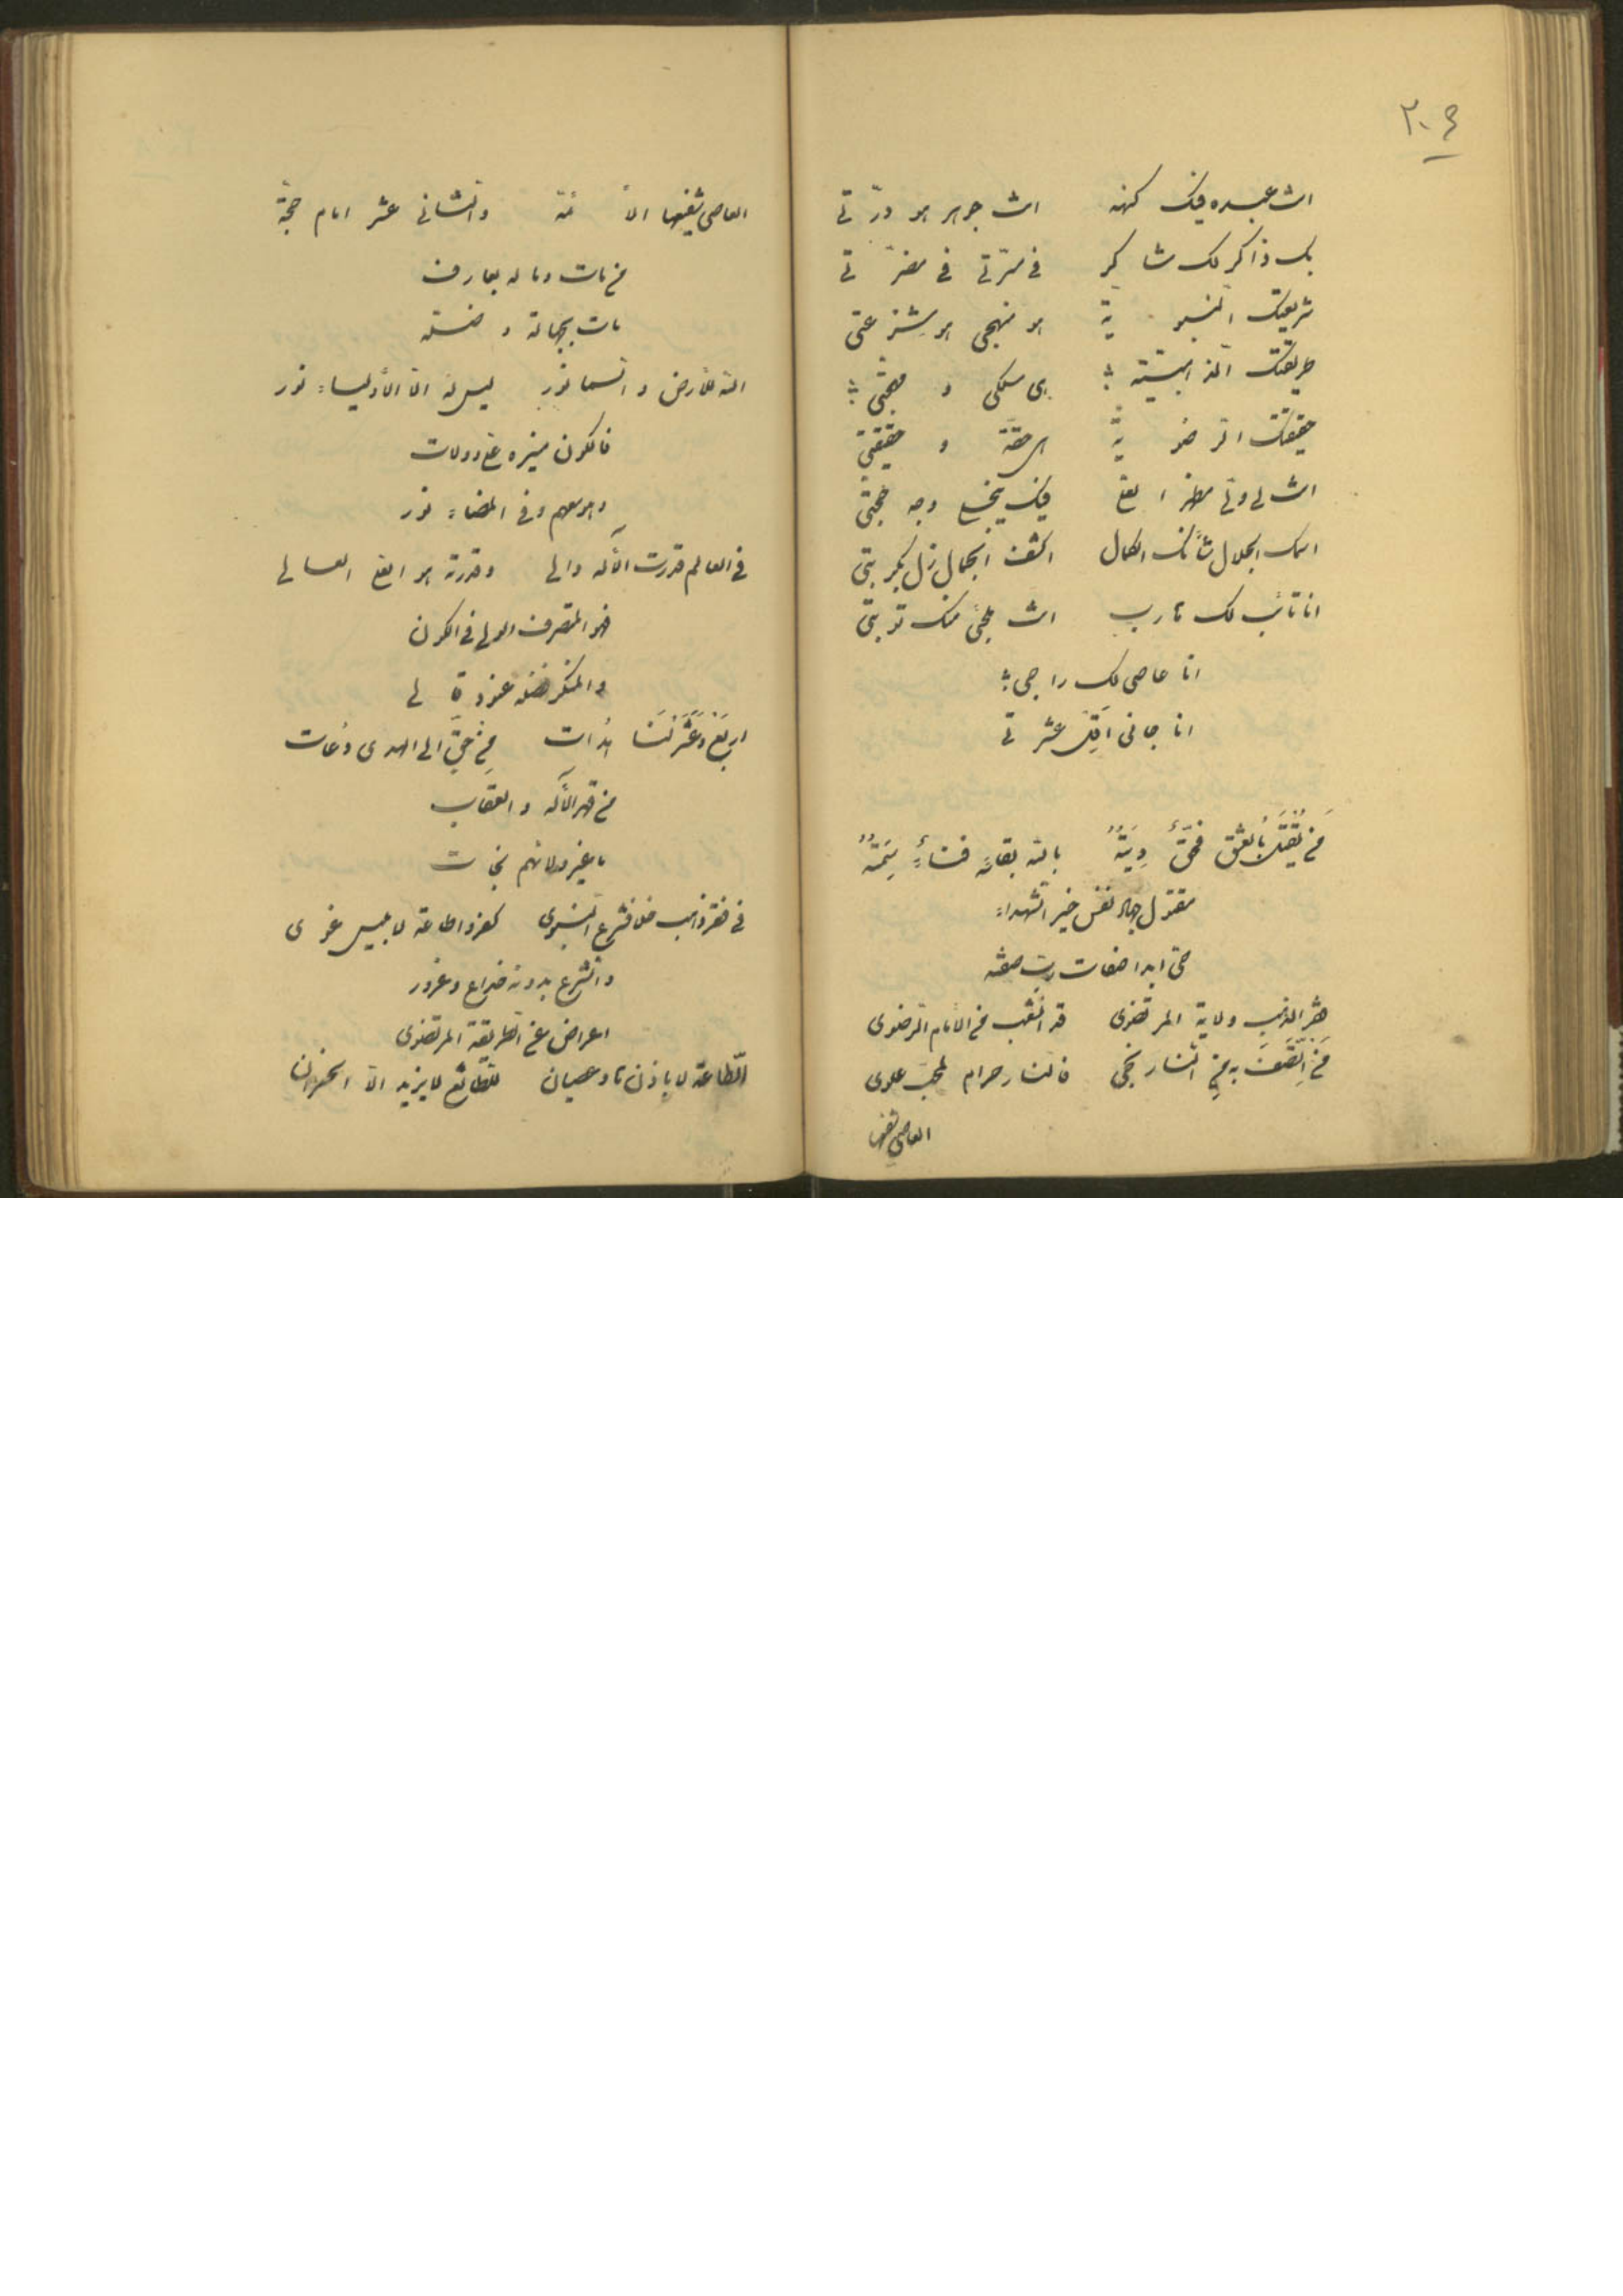 ٢٠٤
انت عبده فيك كنهه انت جوهر هو درّتى
بك ذاكر لك شاكر فى مسرّتى فى مضرّتى
شريعتك النبويّة هو منهجى هو شرعتى
طريقتك الذهبيّة هى مسلكى و محجّتى
حقيقتك الرضويّة هى حقّة و حقيقتى
انت لى ولى مظهر العلى فيك وجه حجّتى
اسمك الجلال شأنك الكمال اكشف الجمال زل كربتى
انا تائب لك يارب انت منك توبتى
انا عاصى لك راجى
انا جانى اقل عثرتى
من يقتل بالعشق فحقّ ديته بالله بقائه فناء
مقتول جهاد نفس خير الشهداء
حىّ ابدا صفات ربّ صفته
الذهب ولاية المرتضوى قد انشعب من الامام الرضوى
من اتّصف به من النار نجى فالنار حرام لمحبّ علوى
العاصى شفيعها
العاصى شفيعها الأئمّة والثانى عشر امام حجّة
من مات وما له بعارف
مات بجهالة و ضلّة
الله للأرض و السما نور ليس له الّا الأولياء نور
فالكون منيره على وولات
وهو معهم وفى الفضاء نور
فى العالم قدرت الآله والى وقدرته هو العلى العالى
فهو المتصرف الولى فى الكون
والمنكر فضله عنود قالى
اربع وعشر لنا هدات من حىّ الى الهدى دعات
من قهر الآله و العقاب
ما غير ولائهم نجات
فى فقر ذهب خلاف شرع النبوى كفر و اطاعة لابليس غوى
والشرع بدونه خداع وغرور
اعراض عن الطريقة المرتضوى
الطّاعة لا باذن تا وعصيان للطّائع لا يزيد الّا الخسران